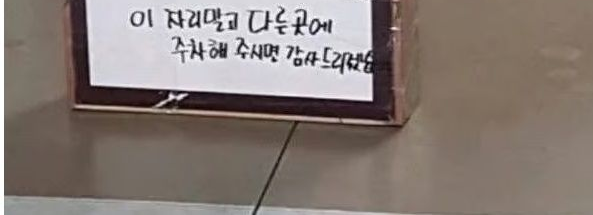 이 자리말고 다른곳에
주차해 주시면 감사드리겠습